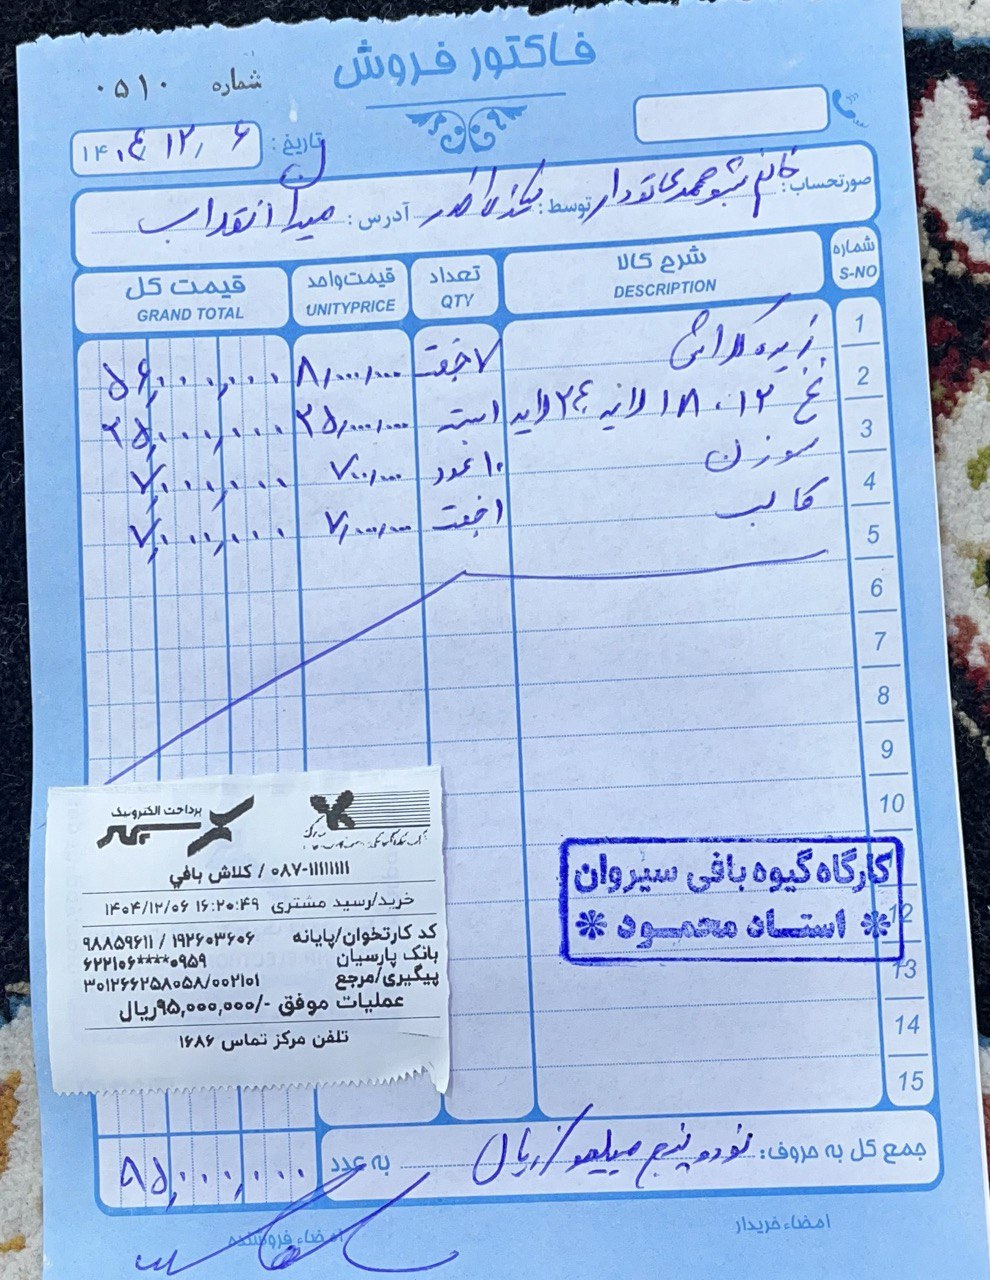 فاکتور فروش
شماره ۰۵۱۰
تاریخ: ۱۴۰۴/۱۲/۶
صورتحساب: خانم توسط: آدرس: میدان انقلاب
شماره S-NO شرح کالا DESCRIPTION تعداد QTY قیمت واحد UNITYPRICE قیمت کل GRAND TOTAL
1 زیره کلاش ۷ جفت ۸/۰۰۰/۰۰۰ ۵۶,۰۰۰,۰۰۰
2 نخ ۱۲، ۱۸ لایه ۲۴ لایه ۱ بسته ۲۵/۰۰۰/۰۰۰ ۲۵,۰۰۰,۰۰۰
3 سوزن ۱۰ عدد ۷۰۰/۰۰۰ ۷,۰۰۰,۰۰۰
4 قالب ۱ جفت ۷/۰۰۰/۰۰۰ ۷,۰۰۰,۰۰۰
5
6
7
8
9
10
12
13
14
15
کارگاه گیوه بافی سیروان
استاد محمود
پرداخت الکترونیک
۰۸۷-۱۱۱۱۱۱۱۱ / کلاش بافي
خرید/رسید مشتری ۱۴۰۴/۱۲/۰۶ ۱۶:۲۰:۴۹
کد کارتخوان/پایانه ۱۹۲۶۰۳۶۰۶ / ۹۸۸۵۹۶۱۱
بانک پارسیان ۶۲۲۱۰۶****۰۹۵۹
پیگیری/مرجع ۳۰۱۲۶۶۲۵۸۰۵۸/۰۰۲۱۰۱
عملیات موفق -/۹۵,۰۰۰,۰۰۰ریال
تلفن مرکز تماس ۱۶۸۶
جمع کل به حروف: نود و پنج میلیون ریال به عدد ۹۵,۰۰۰,۰۰۰
امضاء خریدار امضاء فروشنده